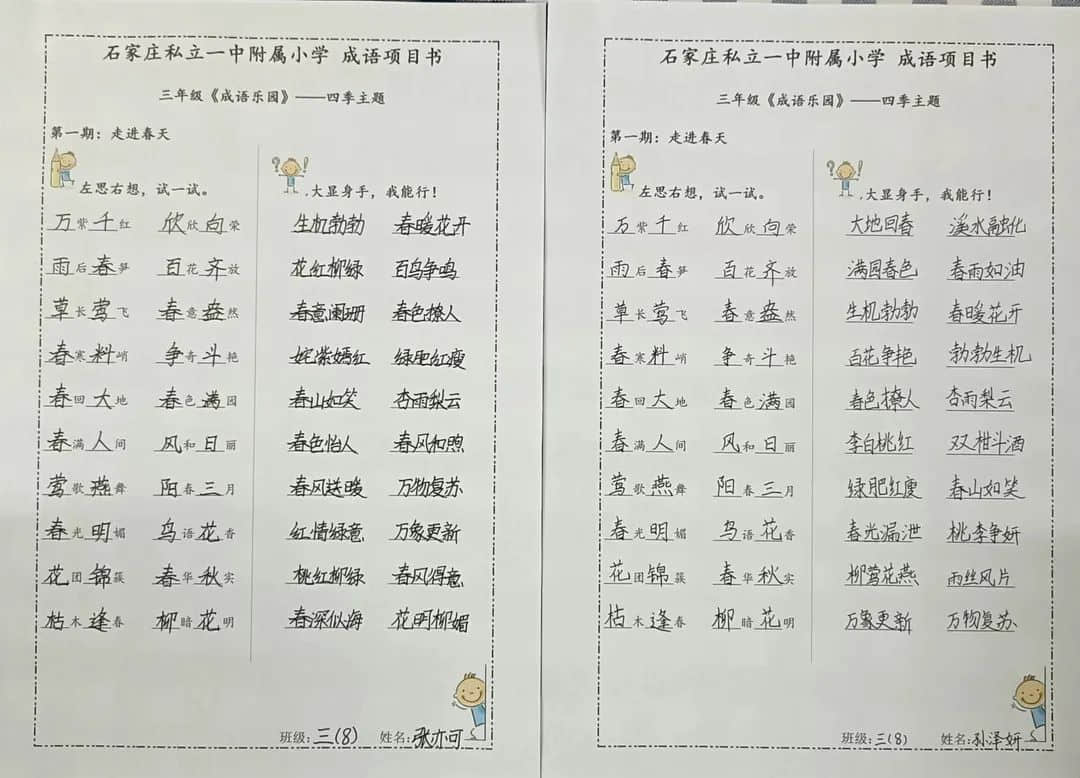 石家庄私立一中附属小学 成语项目书
三年级《成语乐园》——四季主题
第一期：走进春天
左思右想，试一试。
大显身手，我能行！
万紫千红 欣欣向荣 生机勃勃 春暖花开
雨后春笋 百花齐放 花红柳绿 百鸟争鸣
草长莺飞 春意盎然 春意阑珊 春色撩人
春寒料峭 争奇斗艳 姹紫嫣红 绿肥红瘦
春回大地 春色满园 春山如笑 杏雨梨云
春满人间 风和日丽 春色怡人 春风和煦
莺歌燕舞 阳春三月 春风送暖 万物复苏
春光明媚 鸟语花香 红情绿意 万象更新
花团锦簇 春华秋实 桃红柳绿 春风得意
枯木逢春 柳暗花明 春深似海 花明柳媚
班级：三(8) 姓名：张亦可
石家庄私立一中附属小学 成语项目书
三年级《成语乐园》——四季主题
第一期：走进春天
左思右想，试一试。
大显身手，我能行！
万紫千红 欣欣向荣 大地回春 溪水融化
雨后春笋 百花齐放 满园春色 春雨如油
草长莺飞 春意盎然 生机勃勃 春暖花开
春寒料峭 争奇斗艳 百花争艳 勃勃生机
春回大地 春色满园 春色撩人 杏雨梨云
春满人间 风和日丽 李白桃红 双柑斗酒
莺歌燕舞 阳春三月 绿肥红瘦 春山如笑
春光明媚 鸟语花香 春光漏泄 桃李争妍
花团锦簇 春华秋实 柳莺花燕 雨丝风片
枯木逢春 柳暗花明 万象更新 万物复苏
班级：三(8) 姓名：孙泽妍